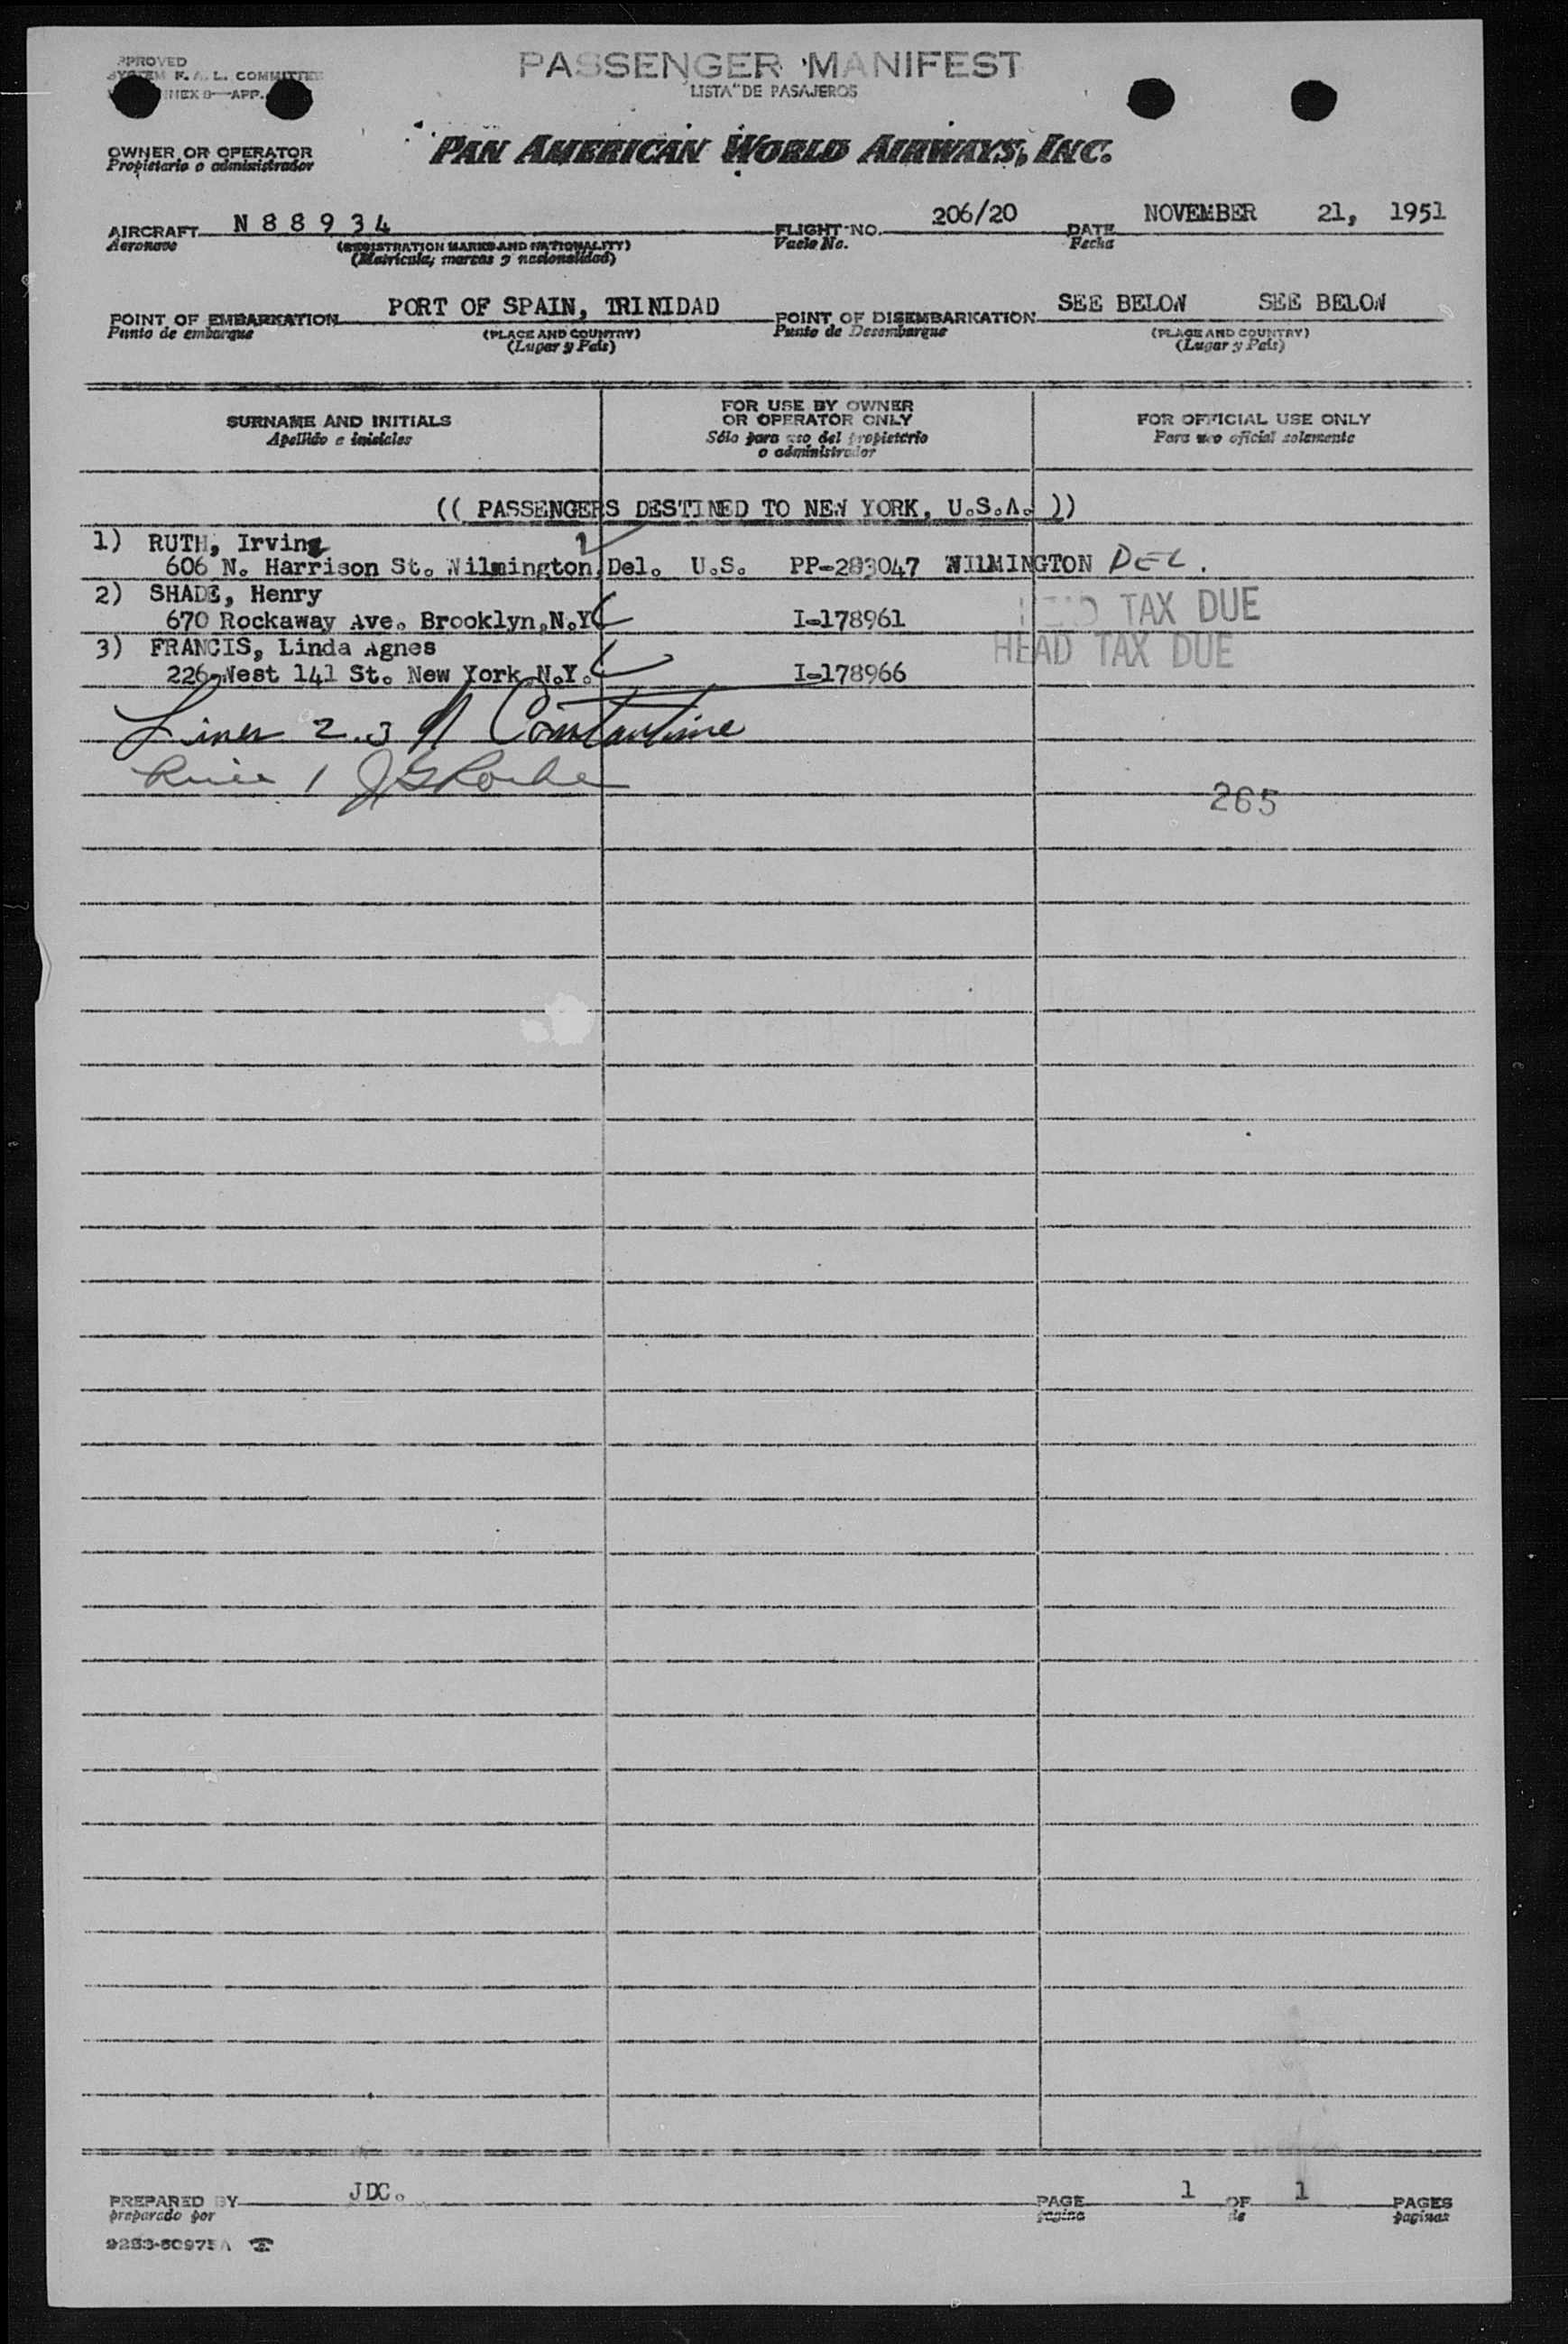 PASSENGER MANIFEST
LISTA DE PASAJEROS
APPROVED
SYSTEM F. A. L. COMMITTEE
ANNEX 9—APP.
OWNER OR OPERATOR
Propietario o administrador
PAN AMERICAN WORLD AIRWAYS, INC.
AIRCRAFT N 8 8 9 3 4 FLIGHT NO. 206/20 DATE NOVEMBER 21, 1951
Aeronave (REGISTRATION MARKS AND NATIONALITY) Vuelo No. Fecha
(Matricula, marcas y nacionalidad)
POINT OF EMBARKATION PORT OF SPAIN, TRINIDAD POINT OF DISEMBARKATION SEE BELOW SEE BELOW
Punto de embarque (PLACE AND COUNTRY) Punto de Desembarque (PLACE AND COUNTRY)
(Lugar y País) (Lugar y País)
SURNAME AND INITIALS
Apellido e iniciales
FOR USE BY OWNER
OR OPERATOR ONLY
Sólo para uso del propietario
o administrador
FOR OFFICIAL USE ONLY
Para uso oficial solamente
(( PASSENGERS DESTINED TO NEW YORK, U.S.A. ))
1) RUTH, Irving
606 N. Harrison St. Wilmington,Del. U.S. PP-283047 WILMINGTON DEL.
2) SHADE, Henry
670 Rockaway Ave. Brooklyn,N.Y. I-178961 HEAD TAX DUE
3) FRANCIS, Linda Agnes HEAD TAX DUE
226 West 141 St. New York,N.Y. I-178966
Lines 2.3 N Constantine
Line 1 J G Roche
265
PREPARED BY JDC. PAGE 1 OF 1 PAGES
preparado por pagina de paginas
9283-60975A